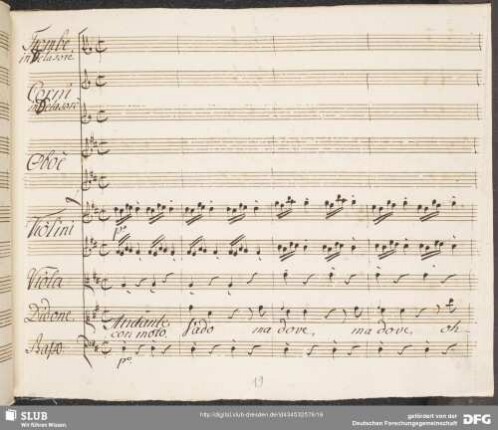 Trombe
in Delasorè
Corni
in Delasorè
Oboè
Violini
pº
Viola
Didone
Andante
con moto
Vado ma dove, ma dove, oh
Basso
pº
19
SLUB
Wir führen Wissen.
http://digital.slub-dresden.de/id434532576/19
gefördert von der
Deutschen Forschungsgemeinschaft
DFG